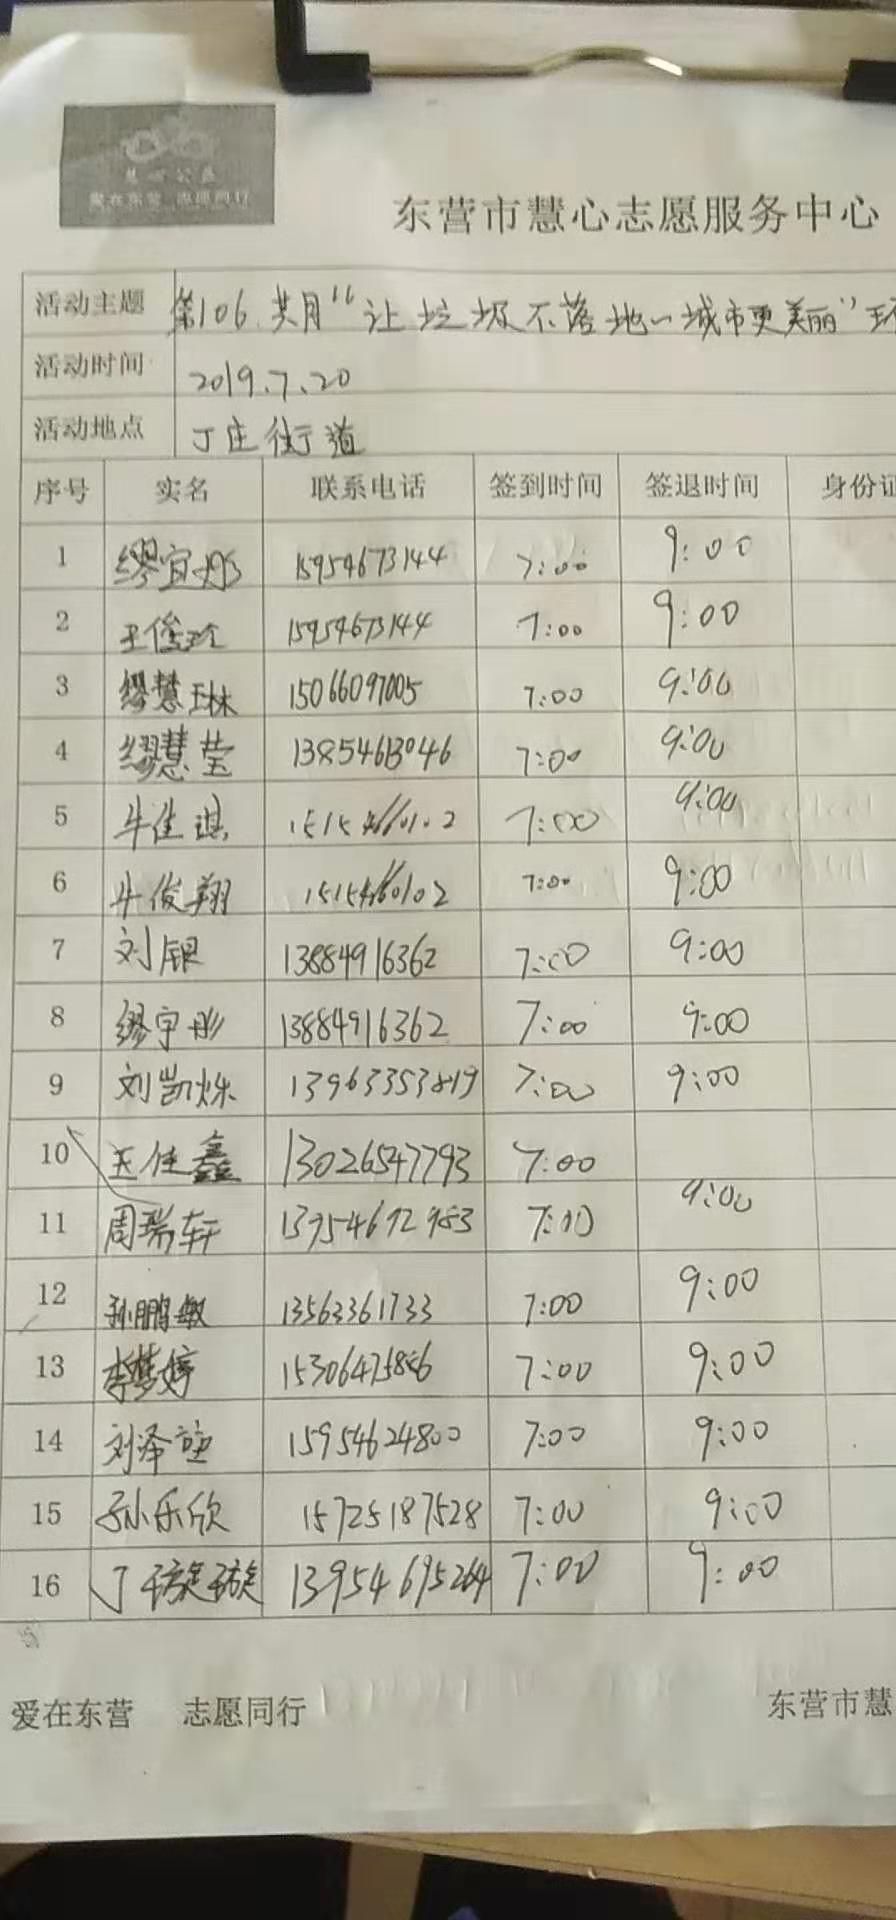 慧心公益
爱在东营 志愿同行
东营市慧心志愿服务中心
活动主题 第106 共月“让垃圾不落地—城市更美丽”环
活动时间 2019.7.20
活动地点 丁庄街道
序号 实名 联系电话 签到时间 签退时间 身份证
1 缪宜彤 15954673144 7:00 9:00
2 王俊玲 15954673144 7:00 9:00
3 缪慧琳 15066097005 7:00 9:00
4 缪慧莹 13854613046 7:00 9:00
5 牛佳琪 7:00 9:00
6 牛俊翔 7:00 9:00
7 刘银 13884916362 7:00 9:00
8 缪宇彤 13884916362 7:00 9:00
9 刘凯烁 13963353819 7:00 9:00
10 王佳鑫 13026547793 7:00
11 周瑞轩 13954692983 7:00 9:00
12 孙鹏敏 13563361733 7:00 9:00
13 李梦婷 15306475886 7:00 9:00
14 刘泽 15954624800 7:00 9:00
15 孙乐欣 15725187528 7:00 9:00
16 丁璇璇 13954695264 7:00 9:00
爱在东营 志愿同行 东营市慧